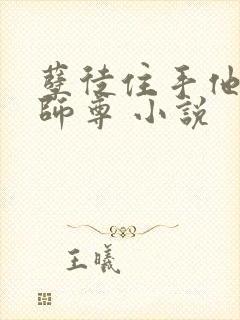 孽徒住手他
師尊 小說
王曦